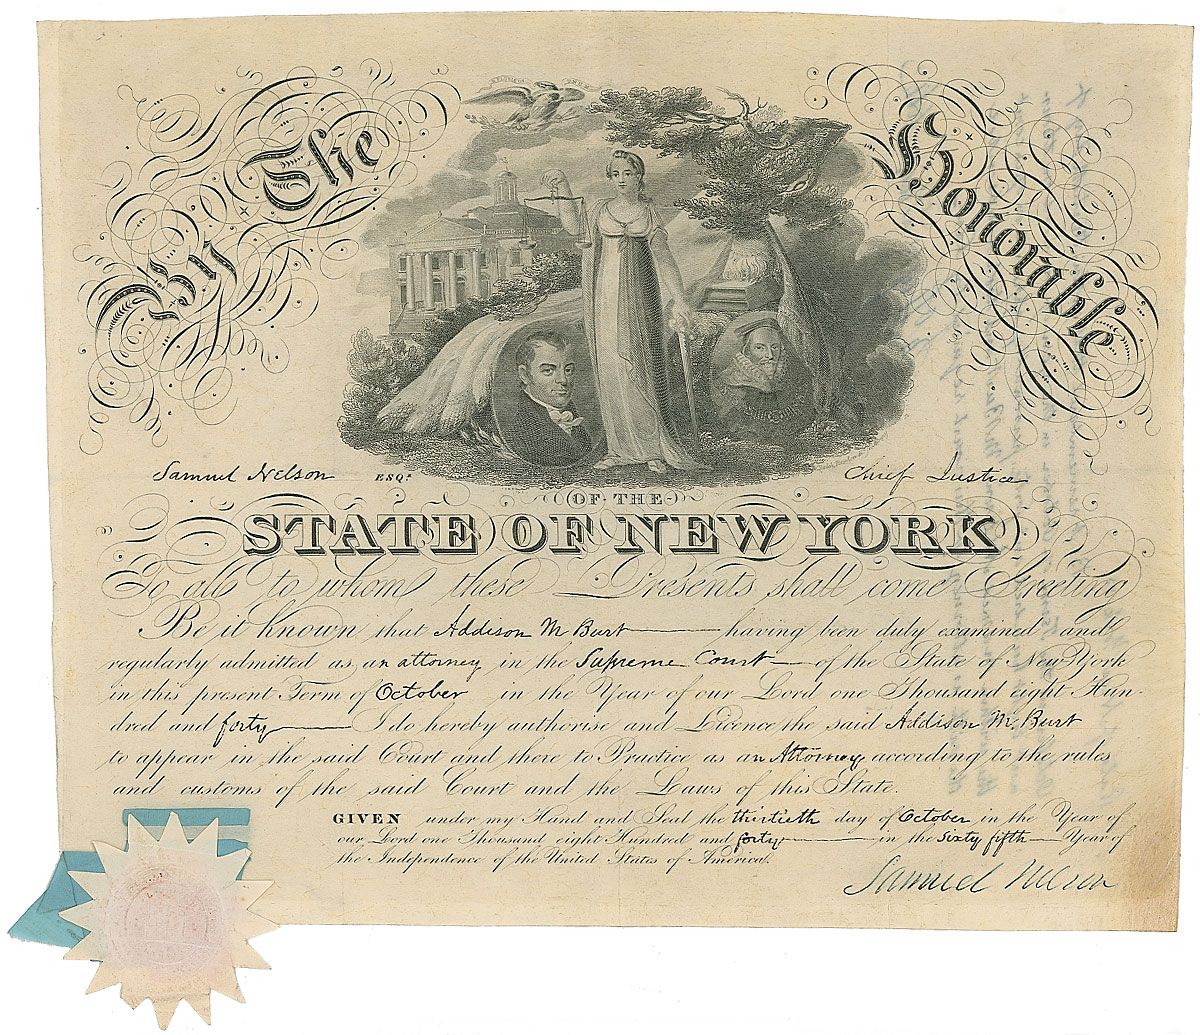 By The Honorable
E PLURIBUS UNUM
Samuel Nelson ESQR. Chief Justice
OF THE
STATE OF NEW YORK
To all to whom these Presents shall come Greeting
Be it known that Addison M Burt having been duly examined and
regularly admitted as an attorney in the Supreme Court of the State of New York
in this present Term of October in the Year of our Lord one Thousand eight Hun-
dred and forty I do hereby authorise and Licence the said Addison M. Burt
to appear in the said Court and there to Practice as an Attorney according to the rules
and customs of the said Court and the Laws of this State.
GIVEN under my Hand and Seal the thirtieth day of October in the Year of
our Lord one Thousand eight Hundred and forty in the Sixty fifth Year of
the Independence of the United States of America.
Samuel Nelson